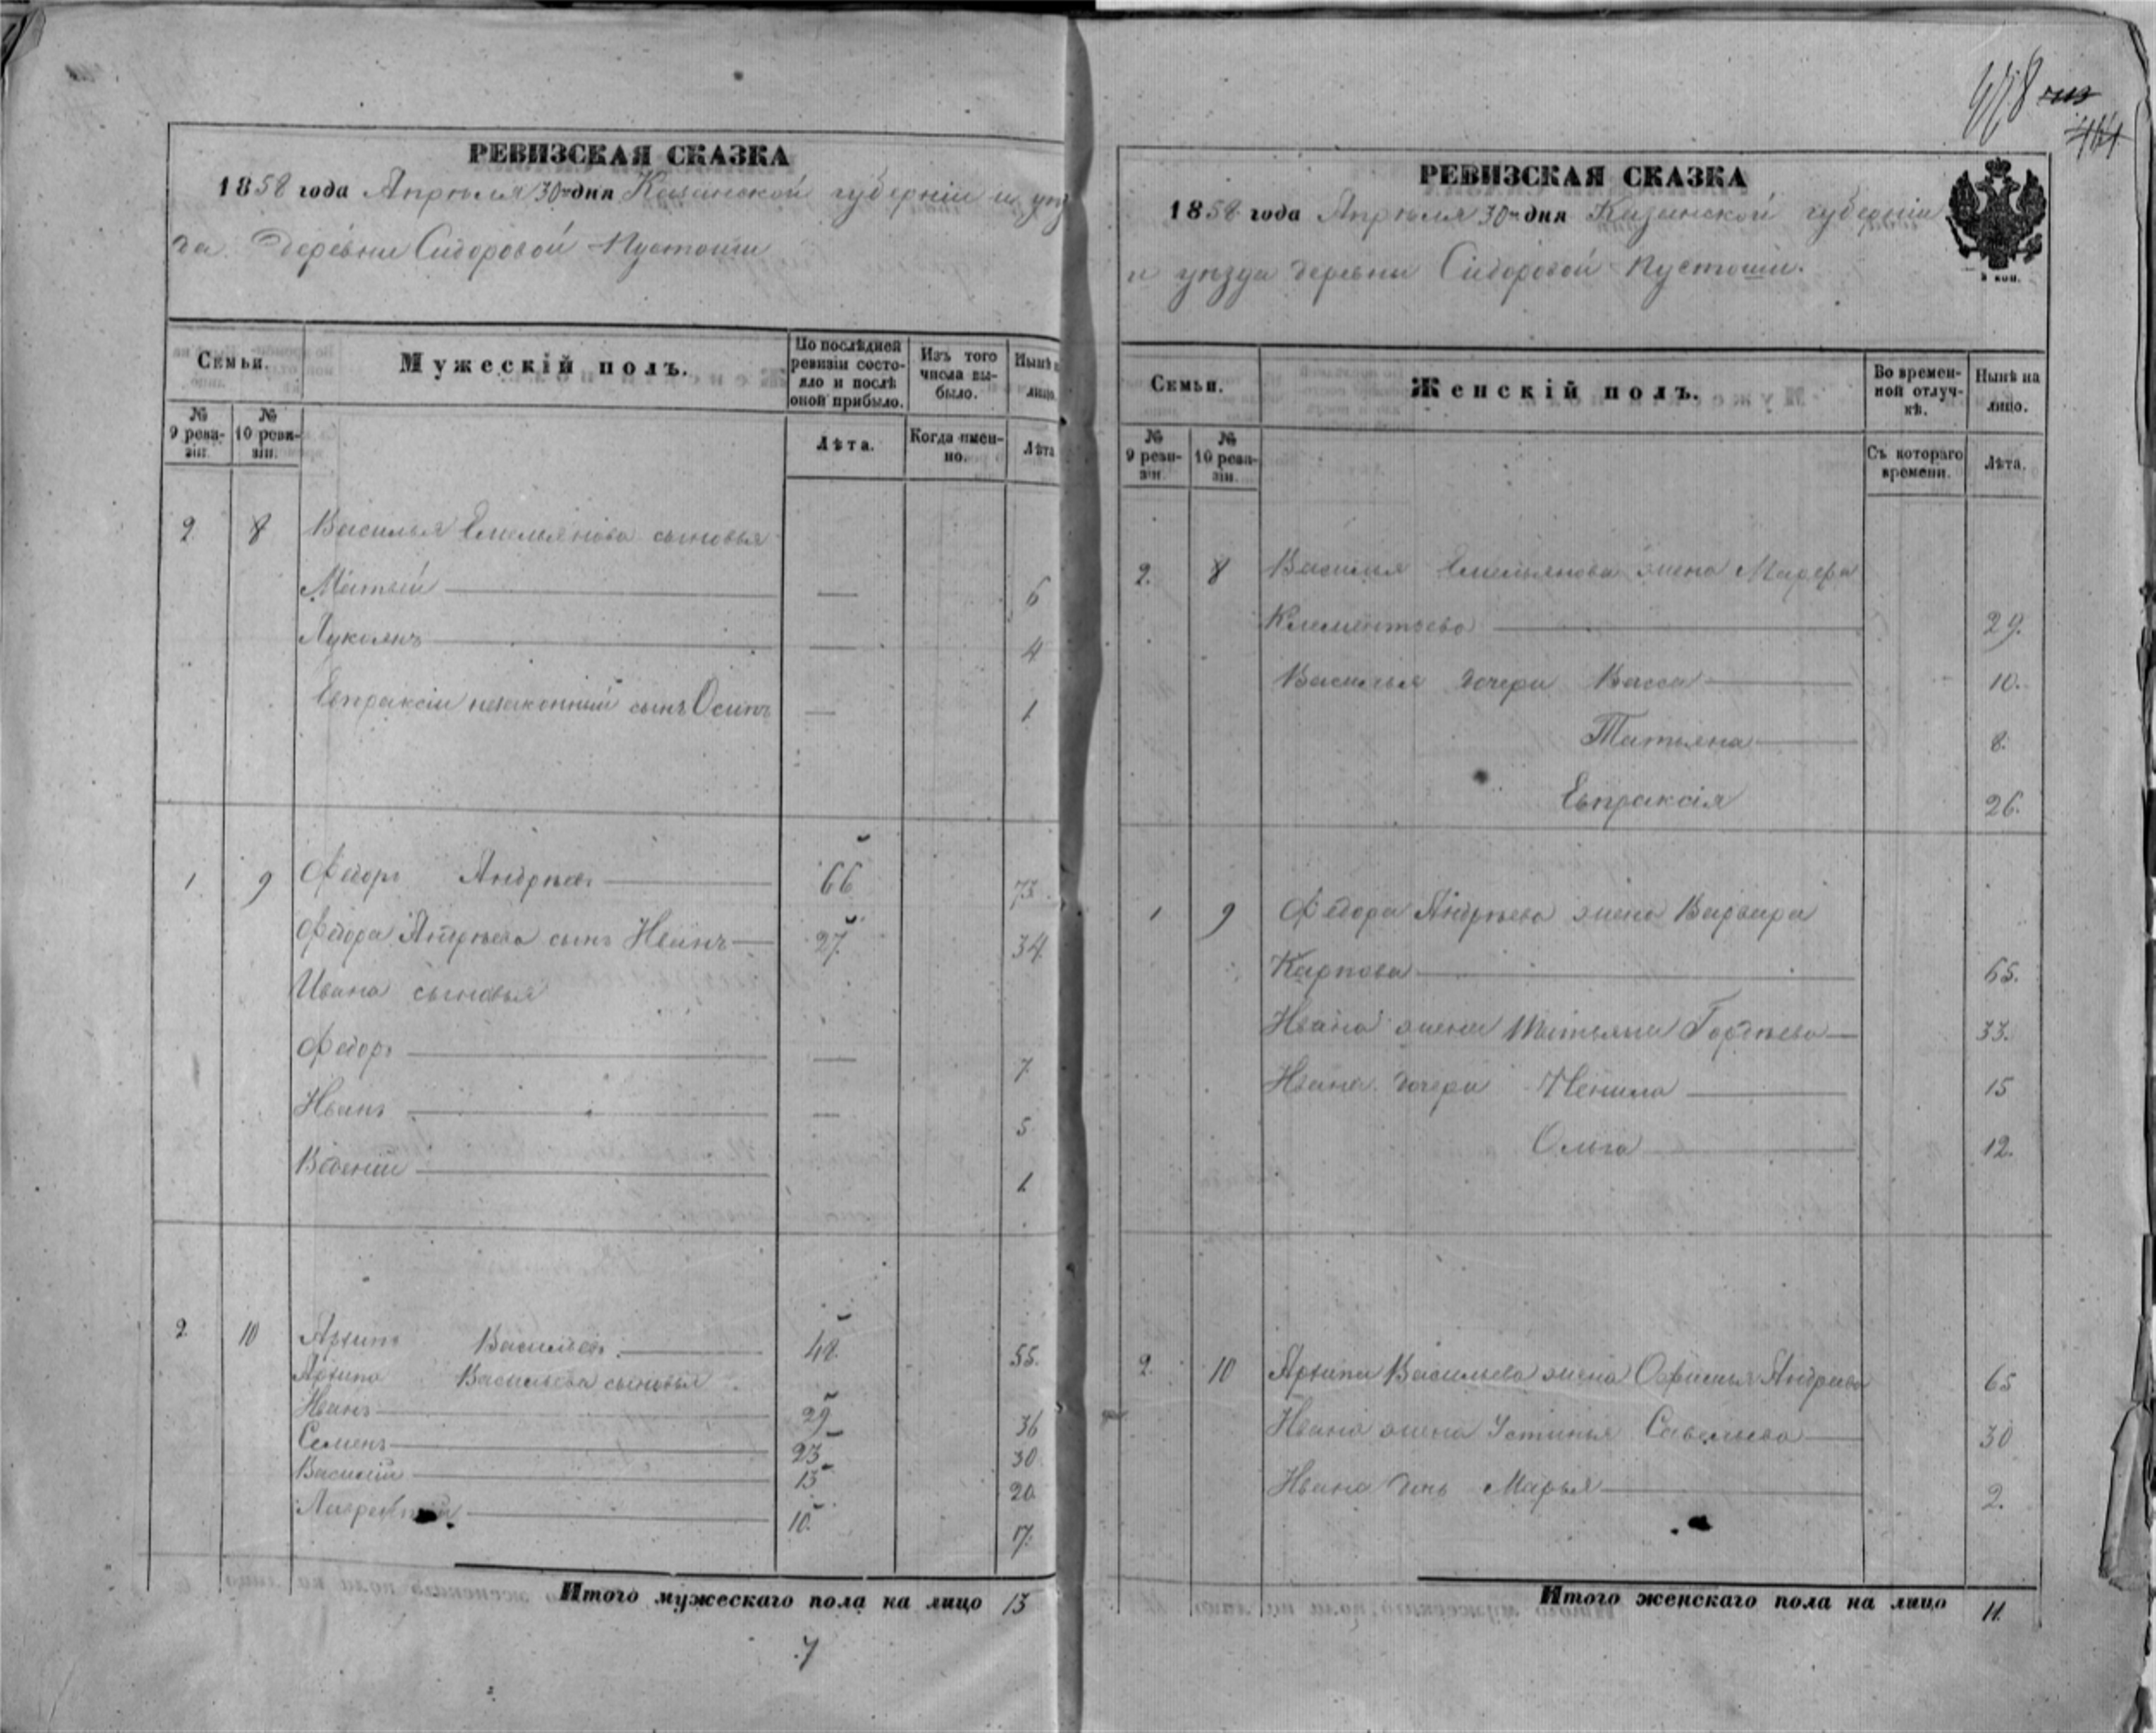 РЕВИЗСКАЯ СКАЗКА
1858 года Апрѣля 30го дня Казанской губерніи и уѣз
да деревни Сидоровой Пустоши
Семьи.
Мужескій полъ.
По послѣдней ревизіи состояло и послѣ оной прибыло.
Изъ того числа выбыло.
Нынѣ н лицо.
№ 9 ревизіи.
№ 10 ревизіи.
Лѣта.
Когда именно.
Лѣта
2 8 Василья Емельянова сыновья
Матвѣй — 6
Лукоянъ — 4
Евпраксіи незаконный сынъ Осипъ — 1
1 9 Федоръ Андрѣевъ 66 73
Федора Андрѣева сынъ Иванъ 27 34
Ивана сыновья
Федоръ — 7
Иванъ — 5
— 1
2 10 Архипъ Васильевъ 48. 55.
Архипа Васильева сыновья
Иванъ 29 36
Семенъ 23 30
Василій 13 20
Лаврентій 10. 17.
Итого мужескаго пола на лицо 13
7
478
РЕВИЗСКАЯ СКАЗКА
1858 года Апрѣля 30го дня Казанской губерніи
и уѣзда деревни Сидоровой Пустоши.
Семьи.
Женскій полъ.
Во временной отлучкѣ.
Нынѣ на лицо.
№ 9 ревизіи.
№ 10 ревизіи.
Съ котораго времени.
Лѣта.
2. 8 Василья Емельянова жена Марфа
Климентьева 29.
Василья дочери Васса 10.
Татьяна 8.
Евпраксія 26.
1 9 Федора Андрѣева жена Варвара
Карпова 65.
Ивана жена Татьяна Гордѣева 33.
Ивана дочери Ненила 15
Ольга 12.
2. 10 Архипа Васильева жена Офимья Андреева 65
Ивана жена Устинья Савельева 30
Ивана дочь Марья 2.
Итого женскаго пола на лицо 11.